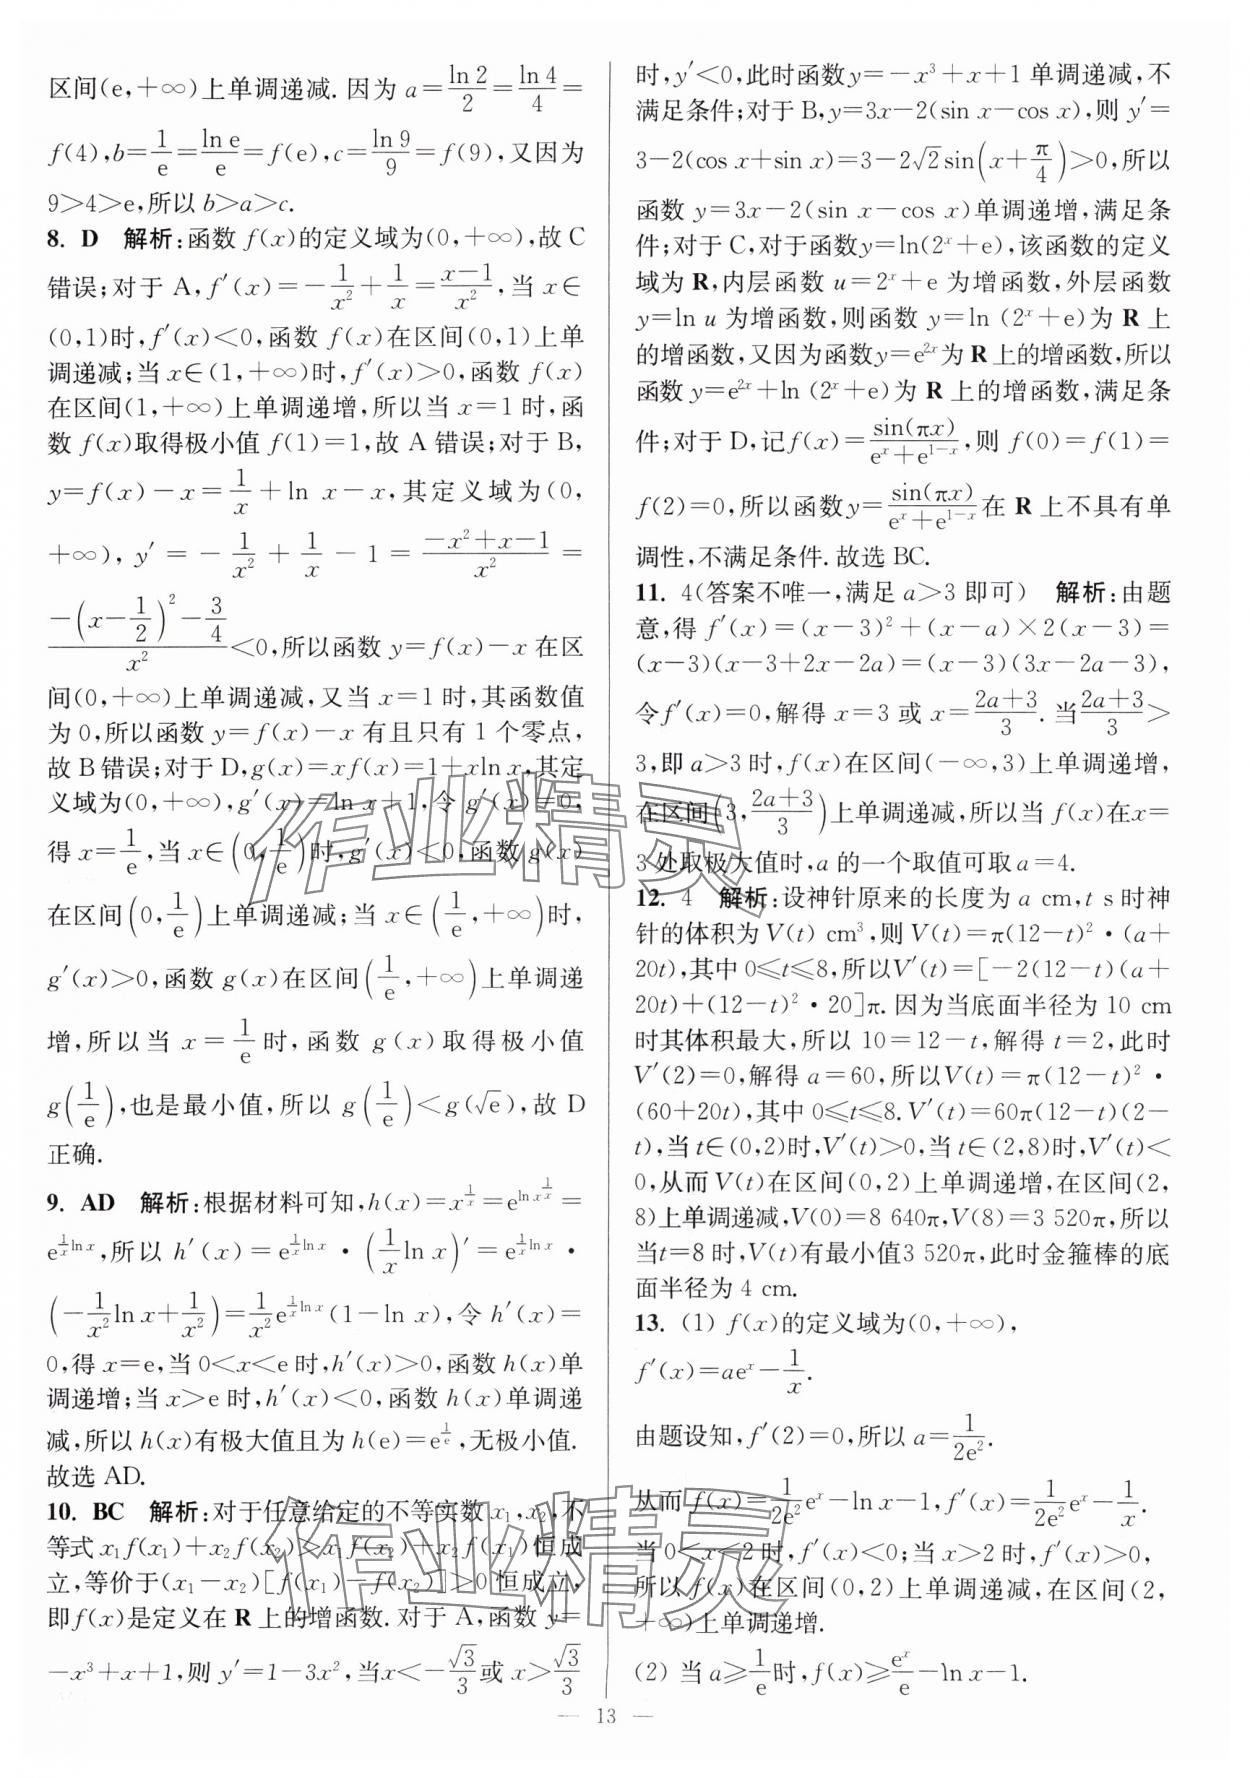 区间(e,+∞)上单调递减. 因为 a=ln 2/2=ln 4/4=
f(4),b=1/e=ln e/e=f(e),c=ln 9/9=f(9),又因为
9>4>e,所以 b>a>c.
8. D 解析:函数 f(x)的定义域为(0,+∞),故 C
错误;对于 A,f′(x)=-1/x²+1/x=(x-1)/x²,当 x∈
(0,1)时,f′(x)<0,函数 f(x)在区间(0,1)上单
调递减;当 x∈(1,+∞)时,f′(x)>0,函数 f(x)
在区间(1,+∞)上单调递增,所以当 x=1 时,函
数 f(x)取得极小值 f(1)=1,故 A 错误;对于 B,
y=f(x)-x=1/x+ln x-x,其定义域为(0,
+∞), y′=-1/x²+1/x-1=(-x²+x-1)/x²=
(-(x-1/2)²-3/4)/x²<0,所以函数 y=f(x)-x 在区
间(0,+∞)上单调递减,又当 x=1 时,其函数值
为 0,所以函数 y=f(x)-x 有且只有 1 个零点,
故 B 错误;对于 D,g(x)=xf(x)=1+xln x,其定
义域为(0,+∞),g′(x)=ln x+1,令 g′(x)=0,
得 x=1/e,当 x∈(0,1/e)时,g′(x)<0,函数 g(x)
在区间(0,1/e)上单调递减;当 x∈(1/e,+∞)时,
g′(x)>0,函数 g(x)在区间(1/e,+∞)上单调递
增,所以当 x=1/e 时,函数 g(x)取得极小值
g(1/e),也是最小值,所以 g(1/e)<g(√e),故 D
正确.
9. AD 解析:根据材料可知,h(x)=x^(1/x)=e^(ln x^(1/x))=
e^((1/x)ln x),所以 h′(x)=e^((1/x)ln x)·((1/x)ln x)′=e^((1/x)ln x)·
(-1/x² ln x+1/x²)=1/x² e^((1/x)ln x)(1-ln x),令 h′(x)=
0,得 x=e,当 0<x<e 时,h′(x)>0,函数 h(x)单
调递增;当 x>e 时,h′(x)<0,函数 h(x)单调递
减,所以 h(x)有极大值且为 h(e)=e^(1/e),无极小值.
故选 AD.
10. BC 解析:对于任意给定的不等实数 x₁,x₂,不
等式 x₁f(x₁)+x₂f(x₂)>x₁f(x₂)+x₂f(x₁)恒成
立,等价于(x₁-x₂)[f(x₁)-f(x₂)]>0 恒成立,
即 f(x)是定义在 R 上的增函数. 对于 A,函数 y=
-x³+x+1,则 y′=1-3x²,当x<-√3/3或 x>√3/3
时,y′<0,此时函数y=-x³+x+1 单调递减,不
满足条件;对于 B,y=3x-2(sin x-cos x),则 y′=
3-2(cos x+sin x)=3-2√2sin(x+π/4)>0,所以
函数 y=3x-2(sin x-cos x)单调递增,满足条
件;对于 C,对于函数y=ln(2ˣ+e),该函数的定义
域为 R,内层函数 u=2ˣ+e 为增函数,外层函数
y=ln u 为增函数,则函数 y=ln (2ˣ+e)为 R 上
的增函数,又因为函数y=e²ˣ为 R 上的增函数,所以
函数 y=e²ˣ+ln (2ˣ+e)为 R 上的增函数,满足条
件;对于 D,记f(x)=sin(πx)/(eˣ+e¹⁻ˣ),则 f(0)=f(1)=
f(2)=0,所以函数y=sin(πx)/(eˣ+e¹⁻ˣ)在 R 上不具有单
调性,不满足条件.故选 BC.
11. 4(答案不唯一,满足 a>3 即可) 解析:由题
意,得 f′(x)=(x-3)²+(x-a)×2(x-3)=
(x-3)(x-3+2x-2a)=(x-3)(3x-2a-3),
令f′(x)=0,解得 x=3 或 x=(2a+3)/3. 当(2a+3)/3>
3,即 a>3 时,f(x)在区间(-∞,3)上单调递增,
在区间(3,(2a+3)/3)上单调递减,所以当 f(x)在x=
3 处取极大值时,a 的一个取值可取 a=4.
12. 4 解析:设神针原来的长度为 a cm,t s 时神
针的体积为 V(t) cm³,则 V(t)=π(12-t)²·(a+
20t),其中 0≤t≤8,所以V′(t)=[-2(12-t)(a+
20t)+(12-t)²·20]π. 因为当底面半径为 10 cm
时其体积最大,所以 10=12-t,解得 t=2,此时
V′(2)=0,解得 a=60,所以V(t)=π(12-t)²·
(60+20t),其中 0≤t≤8.V′(t)=60π(12-t)(2-
t),当 t∈(0,2)时,V′(t)>0,当 t∈(2,8)时,V′(t)<
0,从而 V(t)在区间(0,2)上单调递增,在区间(2,
8)上单调递减,V(0)=8 640π,V(8)=3 520π,所以
当t=8 时,V(t)有最小值3 520π,此时金箍棒的底
面半径为 4 cm.
13. (1) f(x)的定义域为(0,+∞),
f′(x)=aeˣ-1/x.
由题设知,f′(2)=0,所以 a=1/(2e²).
从而 f(x)=1/(2e²)eˣ-ln x-1,f′(x)=1/(2e²)eˣ-1/x.
当 0<x<2 时,f′(x)<0;当 x>2 时,f′(x)>0,
所以 f(x)在区间(0,2)上单调递减,在区间(2,
+∞)上单调递增.
(2) 当 a≥1/e时,f(x)≥eˣ/e-ln x-1.
— 13 —
作业精灵
作业精灵